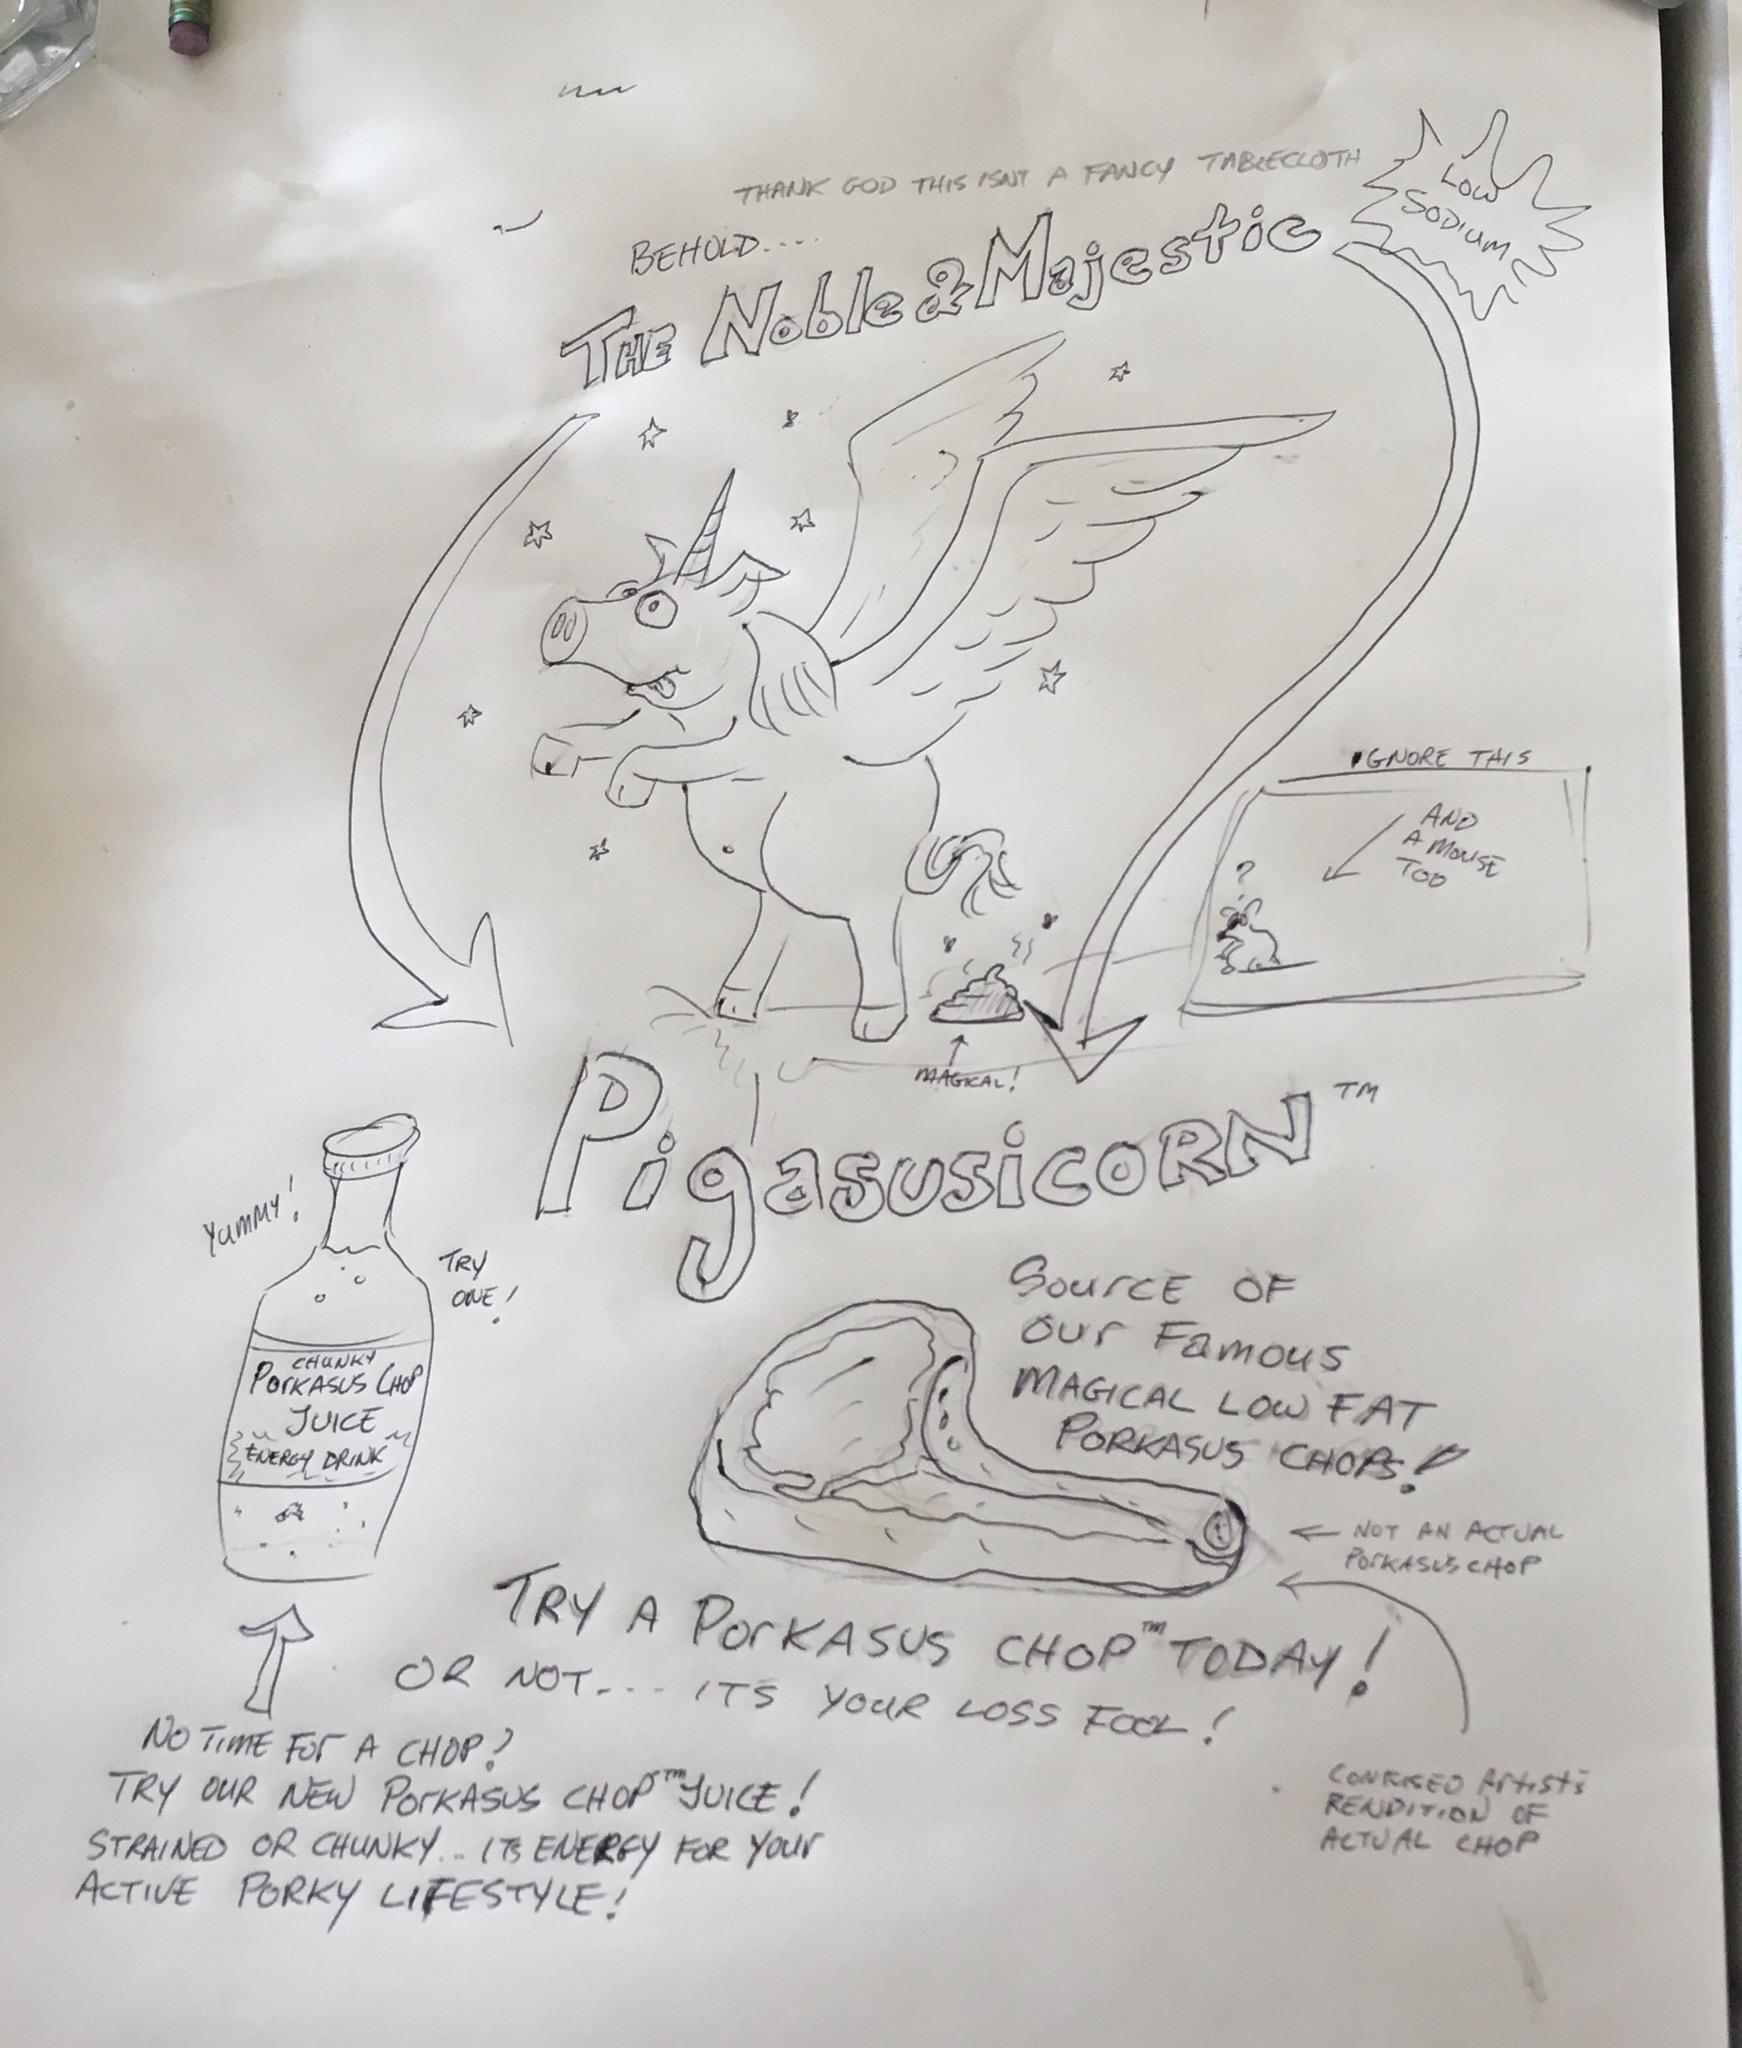 THANK GOD THIS ISNT A FANCY TABLECLOTH
LOW
SODIUM
BEHOLD....
THE Noble & Majestic
IGNORE THIS
AND
A MOUSE
TOO
?
MAGICAL!
PigasusicoRN™
YUMMY!
TRY
ONE!
CHUNKY
PORKASUS CHOP
JUICE
ENERGY DRINK
SOURCE OF
OUR FAMOUS
MAGICAL LOW FAT
PORKASUS CHOPS!
NOT AN ACTUAL
PORKASUS CHOP
TRY A PORKASUS CHOP™ TODAY!
OR NOT.... ITS YOUR LOSS FOOL!
NO TIME FOR A CHOP?
TRY OUR NEW PORKASUS CHOP™ JUICE!
STRAINED OR CHUNKY... ITS ENERGY FOR YOUR
ACTIVE PORKY LIFESTYLE!
CONFUSED ARTIST'S
RENDITION OF
ACTUAL CHOP